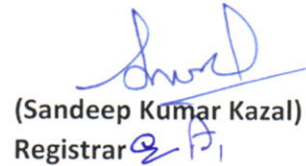 (Sandeep Kumar Kazal)
Registrar